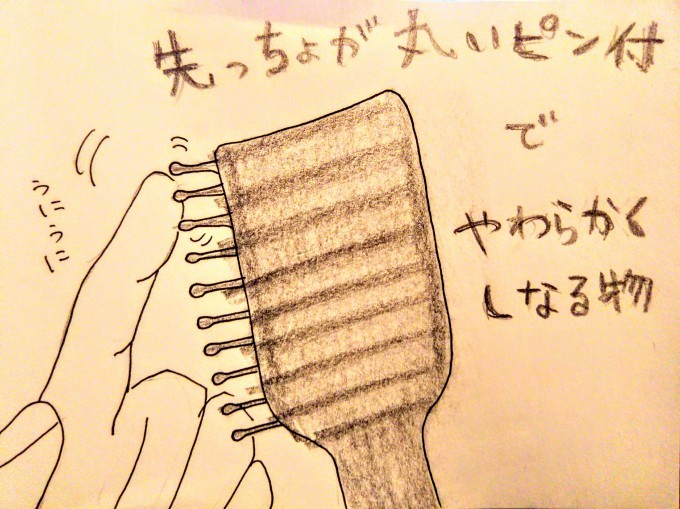 先っちょが丸いピン付
で
やわらかく
しなる物
うにうに